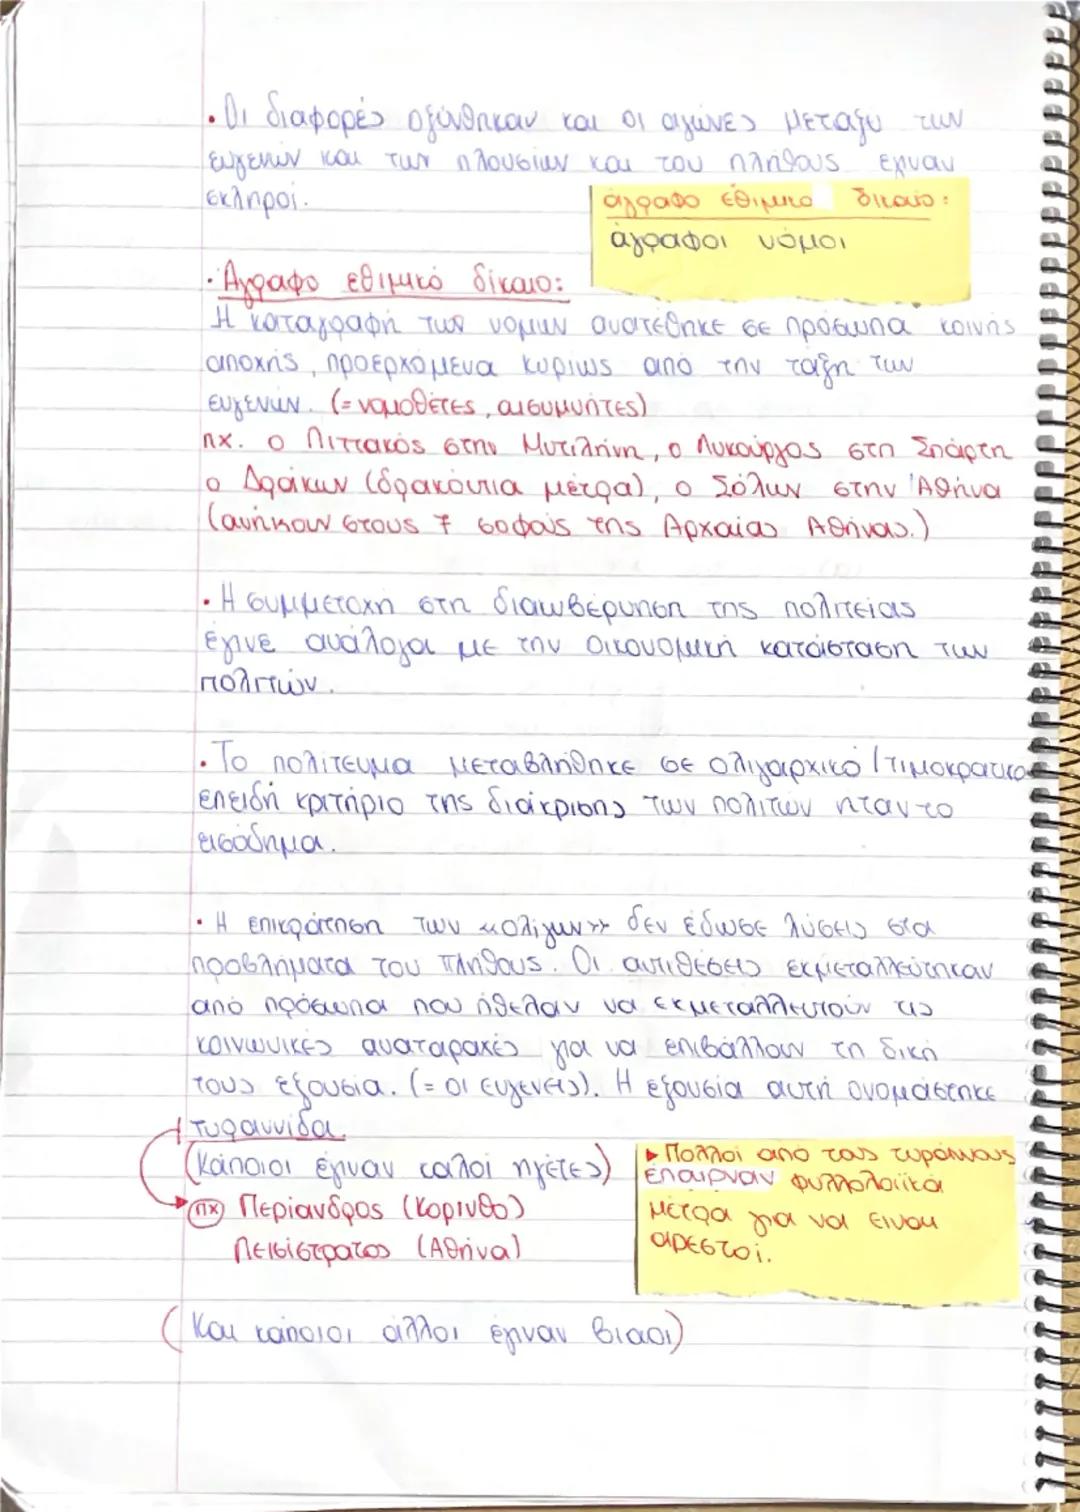 • Οι διαφορές οξύνθηκαν και οι αγώνες μεταξύ των
ευγενών και των πλουσίων και του πλήθους έγιναν
σκληροί.
άγραφο έθιμικο δίκαιο:
άγραφοι νόμοι
• Άγραφο εθιμικό δίκαιο:
Η καταγραφή των νόμων ανατέθηκε σε πρόσωπα κοινής
αποχής, προερχόμενα κυρίως από την τάξη των
ευγενών. (= νομοθέτες, αισυμνήτες)
πχ. ο Πιττακός στην Μυτιλήνη, ο Λυκούργος στη Σπάρτη
ο Δράκων (δρακόντια μέτρα), ο Σόλων στην Άθήνα
(ανήκουν στους 7 σοφούς της Αρχαίας Αθήνας.)
• Η συμμετοχή στη διακυβέρνηση της πολιτείας
έγινε ανάλογα με την οικονομική κατάσταση των
πολιτών.
• Το πολίτευμα μεταβλήθηκε σε ολιγαρχικό / τιμοκρατικο
επειδή κριτήριο της διάκρισης των πολιτών ήταν το
εισόδημα.
• Η επικράτηση των «ολίγων» δεν έδωσε λύσεις στα
προβλήματα του πλήθους. Οι αντιθέσεις εκμεταλλεύτηκαν
από πρόσωπα που ήθελαν να εκμεταλλευτούν τις
κοινωνικές αναταραχές για να επιβάλλουν τη δική
τους εξουσία. (= οι ευγενείς). Η εξουσία αυτή ονομάστηκε
τυραννίδα.
(Κάποιοι έγιναν καλοί ηγέτες)
πχ Περίανδρος (Κορινθο)
Πεισίστρατος (Αθήνα)
▸ Πολλοί από τους τυράννους
έπαιρναν φιλολαϊκά
μέτρα για να είναι
αρεστοί.
(Και κάποιοι άλλοι έγιναν βίαοι)